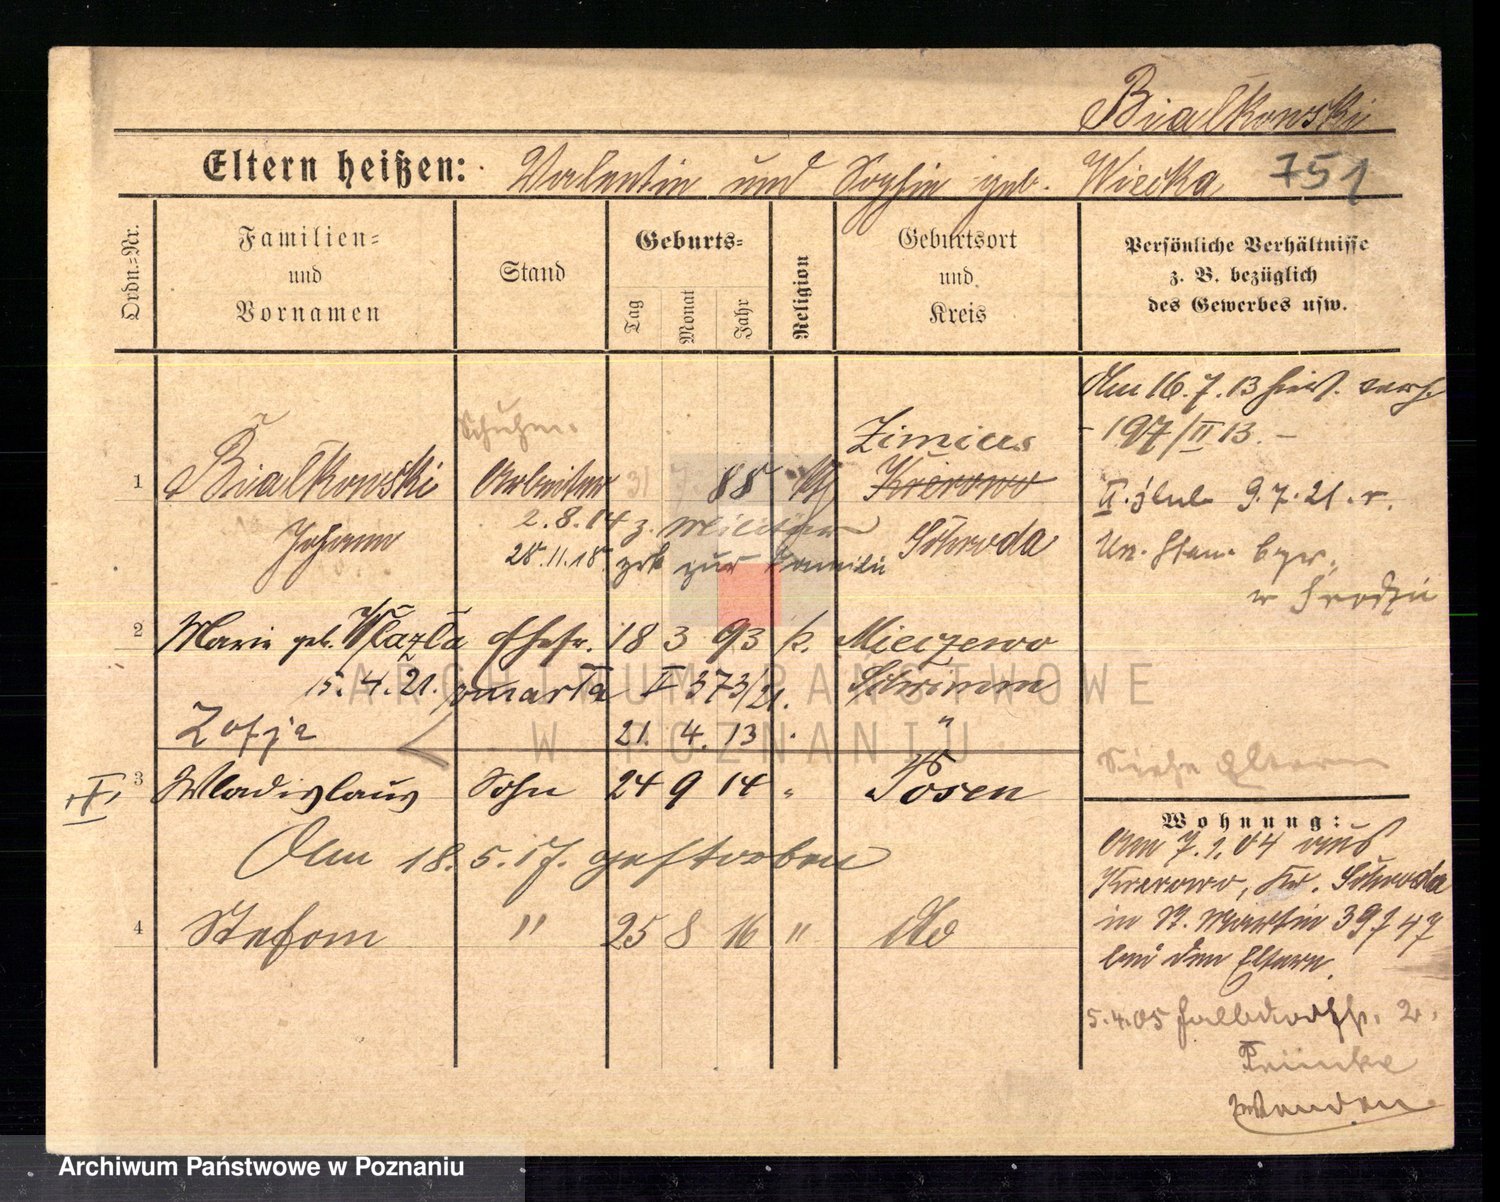 Bialkowski
Eltern heißen: Valentin und Sophie geb. Wiecka 751
Ordn.-Nr.
Familien-
und
Vornamen
Stand
Geburts-
Tag
Monat
Jahr
Religion
Geburtsort
und
Kreis
Persönliche Verhältnisse
z. B. bezüglich
des Gewerbes usw.
Am 16.7.13 hier verh.
- 197/II 13. -
Schuhm.
Zimicus
1 Bialkowski Arbeiter 31 7 88 k Krerowo
II. ślub 9.7.21. r.
Johann
2.8.14 z. Militär
Schroda
28.11.18. zrk zur Familie
2 Marie geb. Wlazla Ehefr. 18 3 93 k. Mieczewo
15.4.21. zmarła I 373/21. Schrimm
Zofja 21. 4. 13 "
Siehe Eltern
3 Wladislaus Sohn 24 9 14 " Posen
Am 18.5.17. gestorben
4 Stefan " 25 8 16 " dto
Wohnung:
Am 7.1.04 aus
Krerowo, Kr. Schroda
in St. Martin 39
bei den Eltern.
5.4.05
Wenden
ARCHIWUM PAŃSTWOWE
W POZNANIU
Archiwum Państwowe w Poznaniu